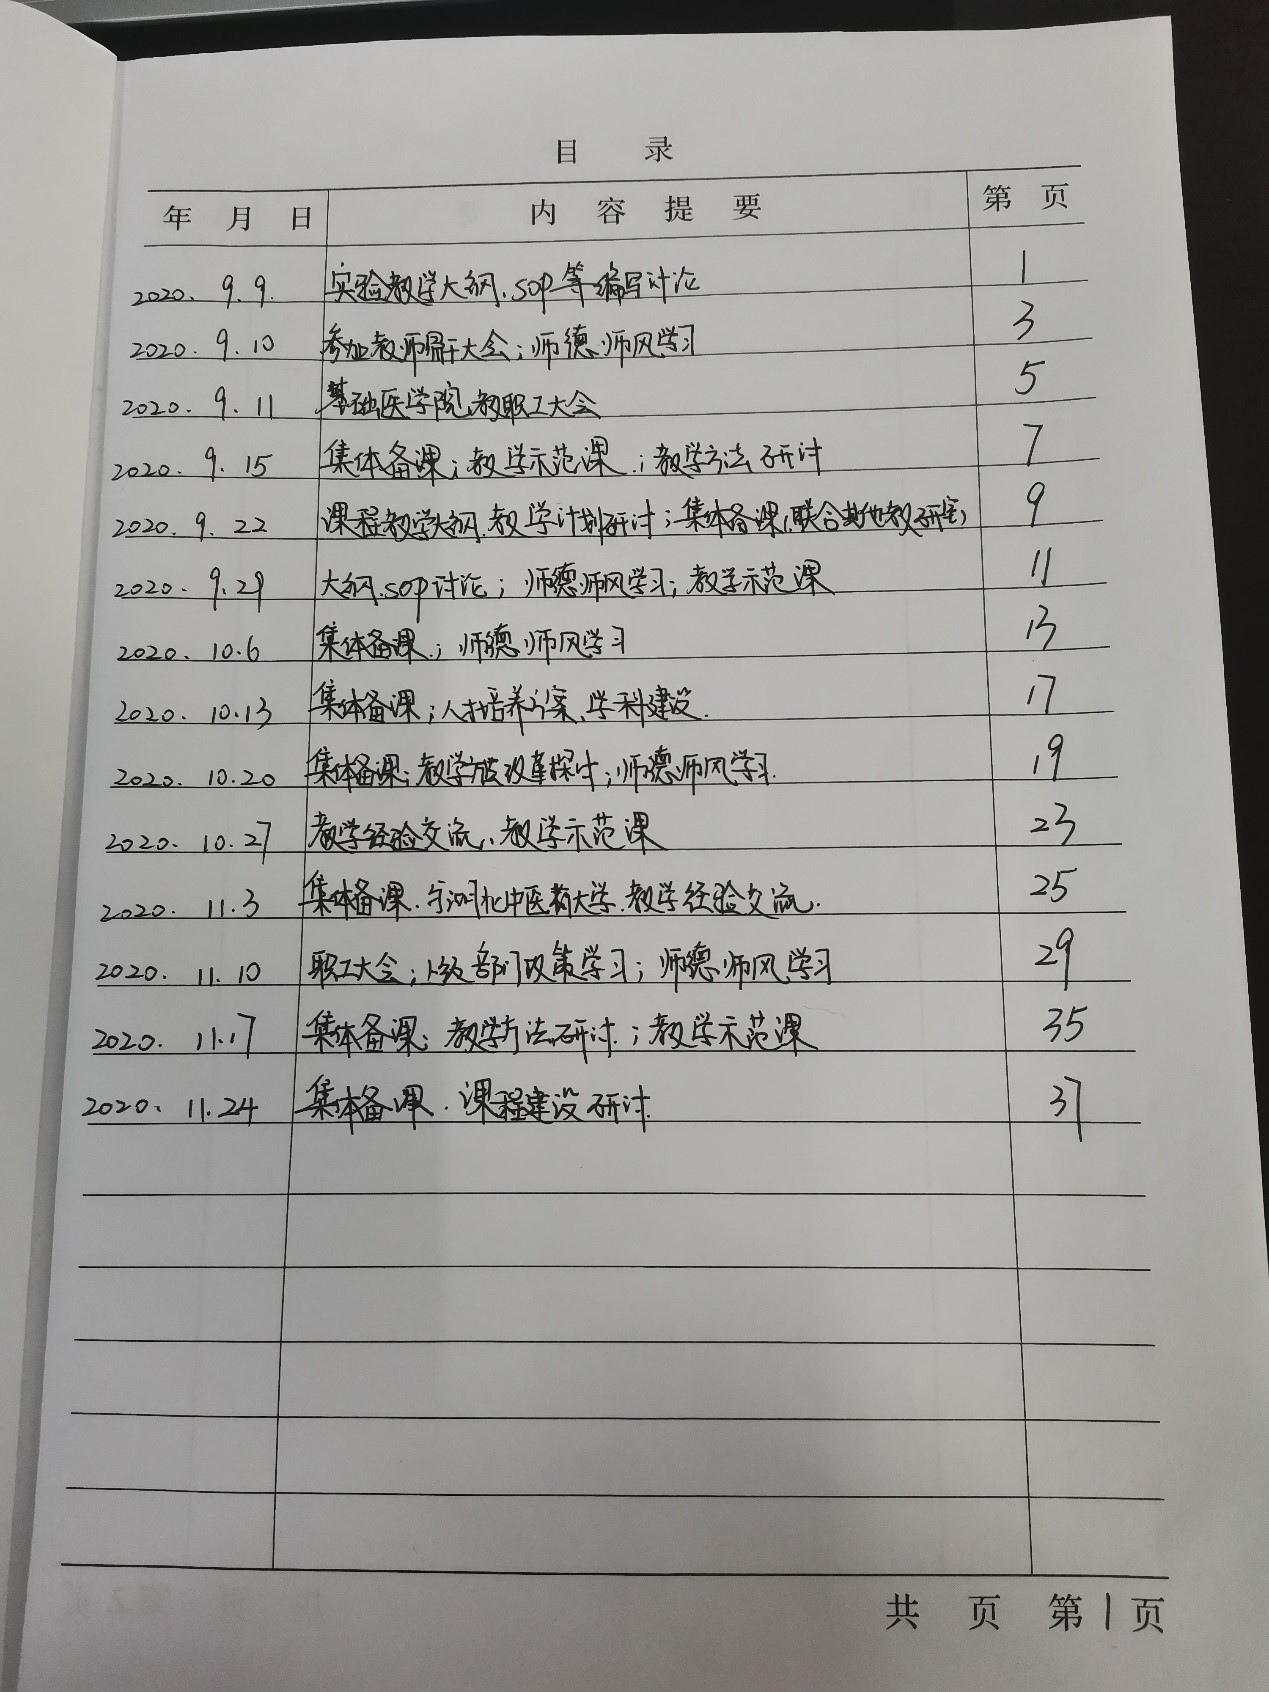 目 录
年 月 日 内 容 提 要 第 页
2020. 9. 9. 实验教学大纲、SOP等编写讨论 1
2020. 9. 10 参加教师骨干大会；师德师风学习 3
2020. 9. 11 基础医学院教职工大会 5
2020. 9. 15 集体备课；教学示范课；教学方法研讨 7
2020. 9. 22 课程教学大纲、教学计划研讨；集体备课（联合其他教研室） 9
2020. 9. 29 大纲、SOP讨论；师德师风学习；教学示范课 11
2020. 10.6 集体备课；师德师风学习 13
2020. 10.13 集体备课；人才培养方案、学科建设. 17
2020. 10.20 集体备课；教学方法改革探讨；师德师风学习. 19
2020. 10.27 教学经验交流；教学示范课 23
2020. 11.3 集体备课.与河北中医药大学.教学经验交流. 25
2020. 11.10 职工大会；上级部门政策学习；师德师风学习 29
2020. 11.17 集体备课；教学方法研讨；教学示范课 35
2020. 11.24 集体备课.课程建设研讨. 37
共 页 第1页